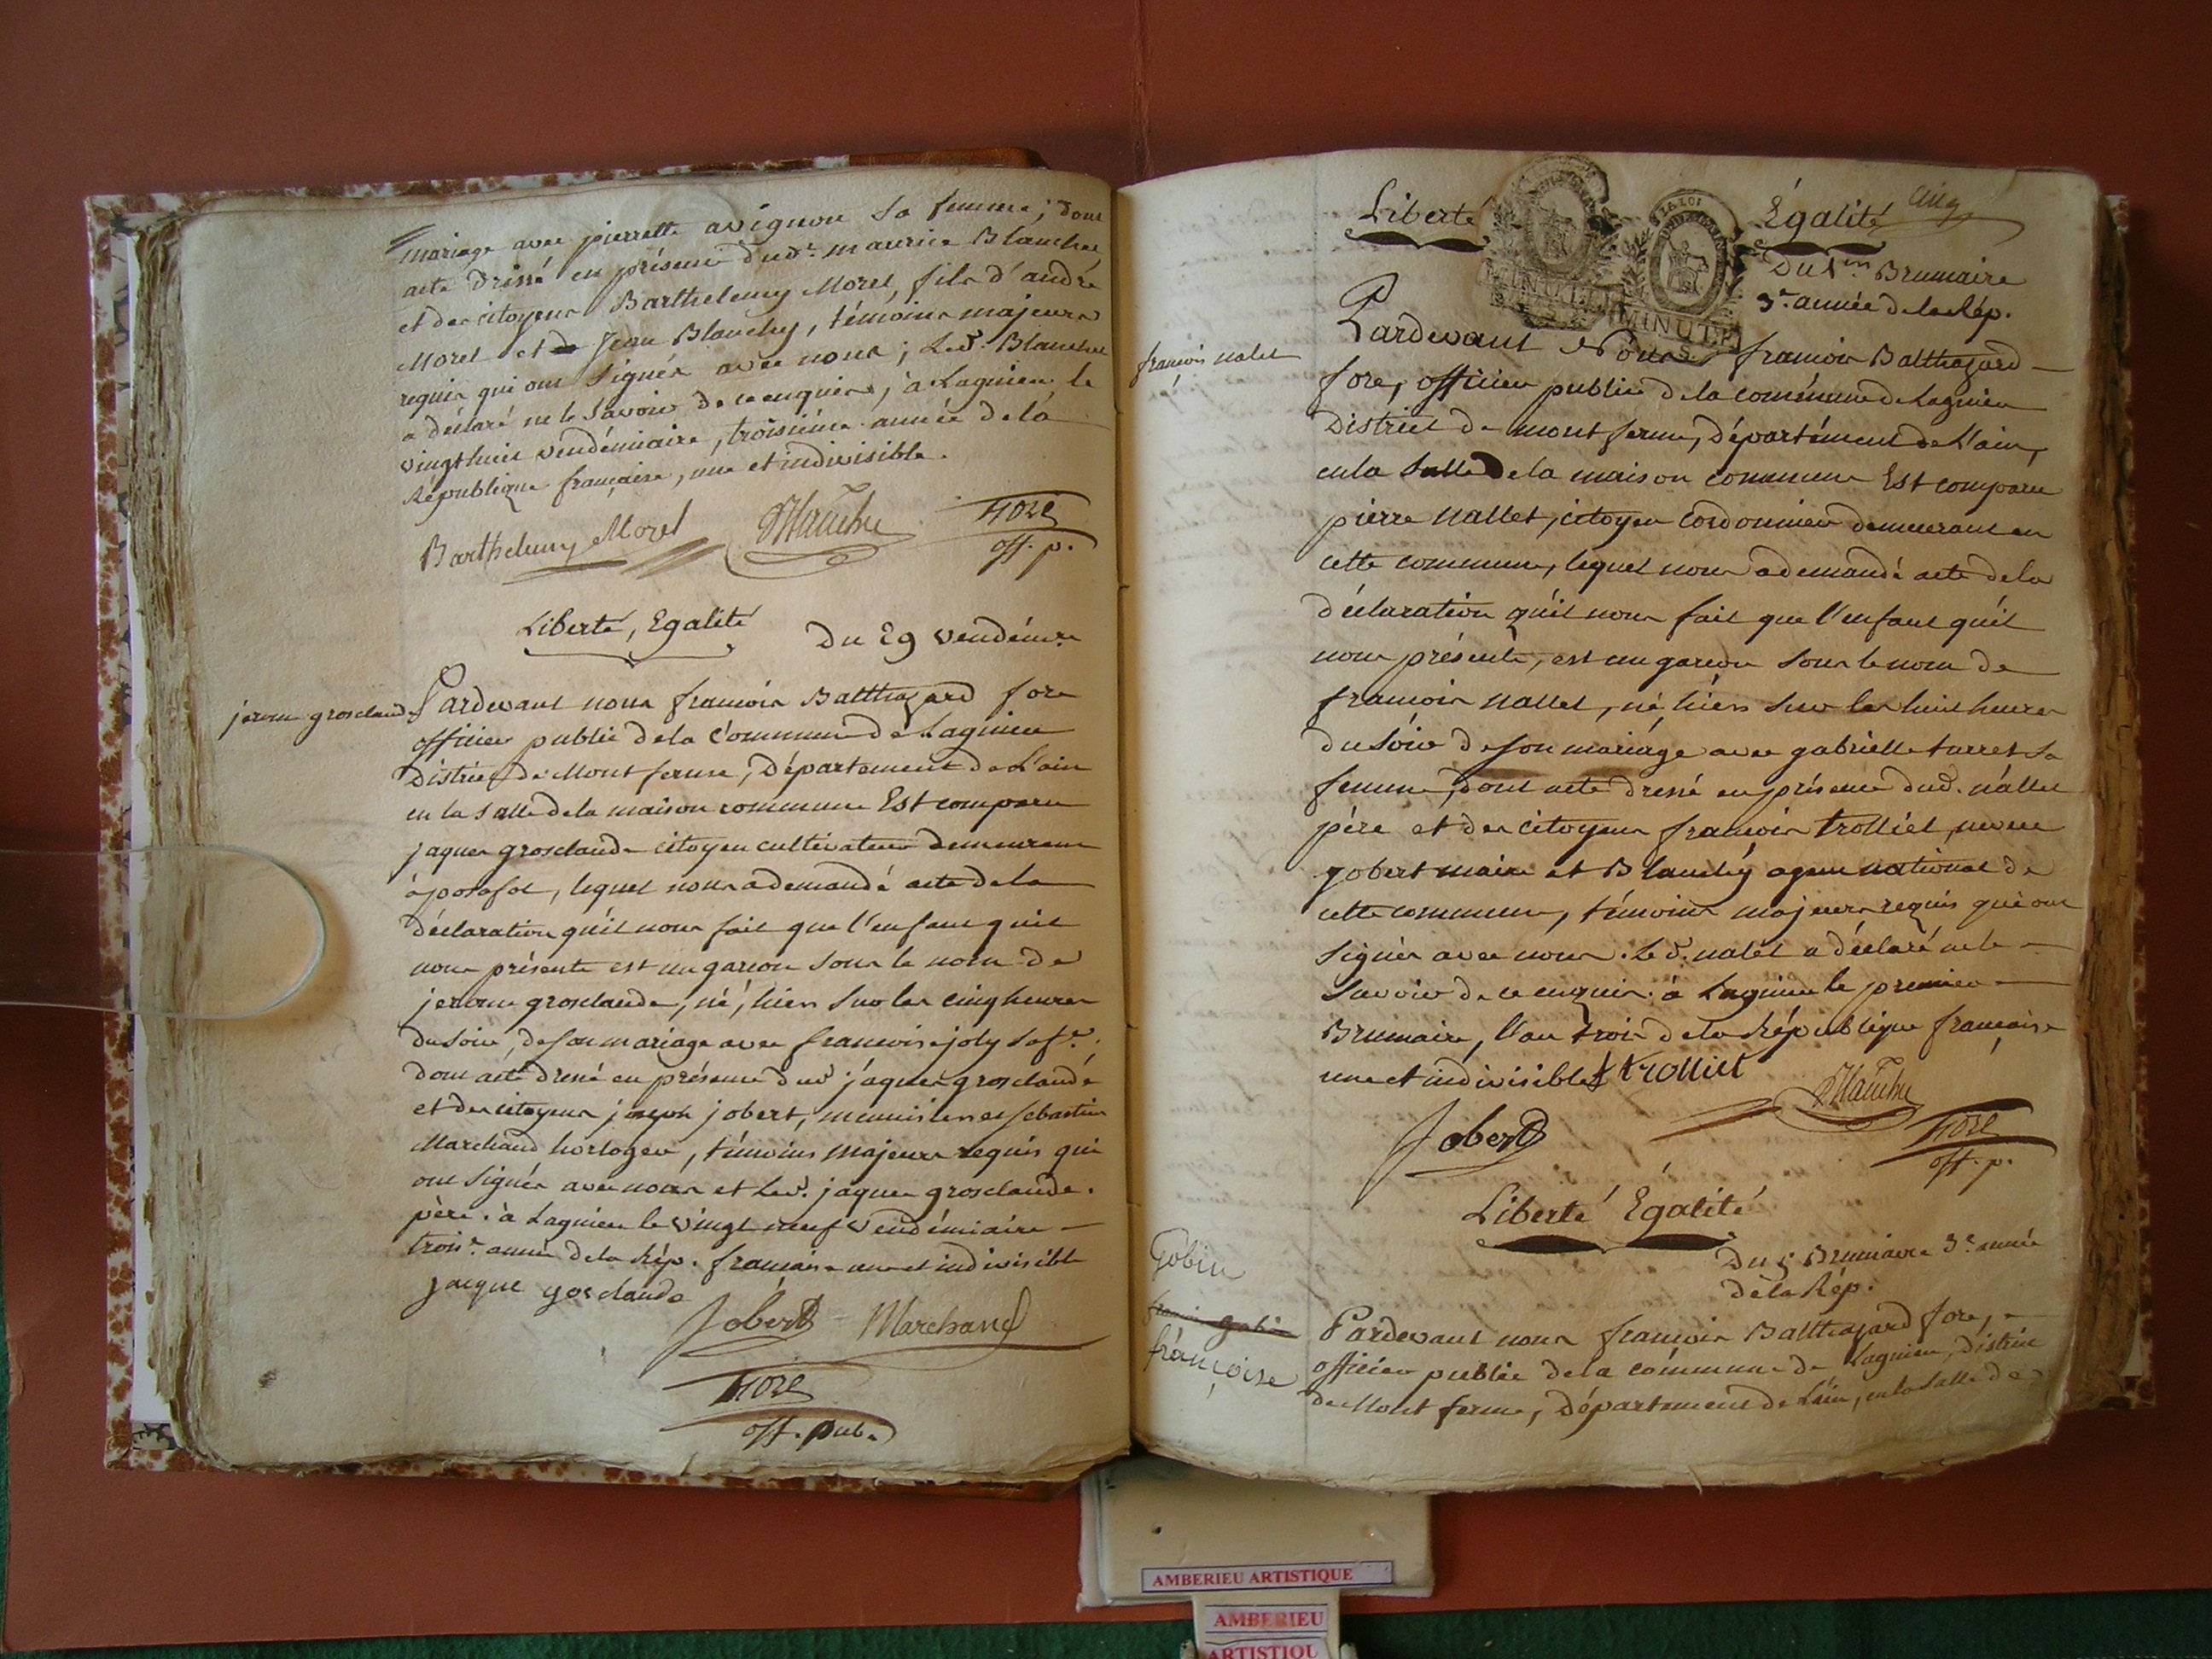 mariage avec pierrette avignon sa femme; dont
acte dressé en présence dud.t maurice Blanchet
et des citoyens Barthelemy Morel, fils d'andré
Morel et de Jean Blanchy, témoins majeurs
requis qui ont signés avec nous; Led.t Blanchet
a déclaré ne le savoir de ce enquis, à Lagnieu le
vingt huit vendémiaire, troisième année de la
République française, une et indivisible.
Barthelemy Morel
Fore
off. p.
Liberté, Egalité
Du 29 vendém.re
jerome grosclaude
Pardevant nous francois Balthazard fore
officier public de la commune de Lagnieu
District de Mont ferme, Département de L'ain
en la salle de la maison commune Est comparu
jaques grosclaude citoyen cultivateur demeurant
à posafol, lequel nous a demandé acte de la
déclaration qu'il nous fait que l'enfant quil
nous présente est un garcon sous le nom de
jerome grosclaude, né, hier sur les cinq heures
du soir, de son mariage avec francoise joly sa f.e
dont acte dressé en présence dud. jaques grosclaude
et des citoyens joseph jobert, menuisier et sebastien
Marchand horloger, témoins majeurs requis qui
ont signés avec nous et Led. jaques grosclaude.
père. à Lagnieu le vingt neuf vendémiaire
trois.e année de la Rép. française une et indivisible
jacque gosclaude
Jobert Marchand
Fore
off. pub.
Liberté Égalité
cinq
MINUTE
MINUTE
Du 1.er Brumaire
3.e année de la Rép.
francois nalet
Pardevant Nous francois Balthazard
fore, officier public de la commune de Lagnieu
District de mont ferme, Département de L'ain,
en la salle de la maison commune Est comparu
pierre nallet, citoyen cordonnier demeurant en
cette commune, lequel nous a demandé acte de la
déclaration qu'il nous fait que l'enfant qu'il
nous présente, est un garcon sous le nom de
francois nallet, né hier sur les huit heures
du soir de son mariage avec gabrielle turret sa
femme, dont acte dressé en présence dud. nallet
père et des citoyens francois trolliet,
jobert maire et Blanchy agent national de
cette commune, témoins majeurs requis qui ont
signés avec nous. Led. nalet a déclaré ne le
savoir de ce enquis. à Lagnieu le premier
Brumaire, l'an trois de la République française
une et indivisible trolliet
Jobert
Fore
off. p.
Liberté Égalité
Du 5 Brumaire 3.e année
de la Rép.
Gobin
francois gobin
françoise
Pardevant nous francois Balthazard fore,
officier public de la commune de Lagnieu, district
de Mont ferme, Département de L'ain, en la salle de
AMBERIEU ARTISTIQUE
AMBERIEU
ARTISTIQU